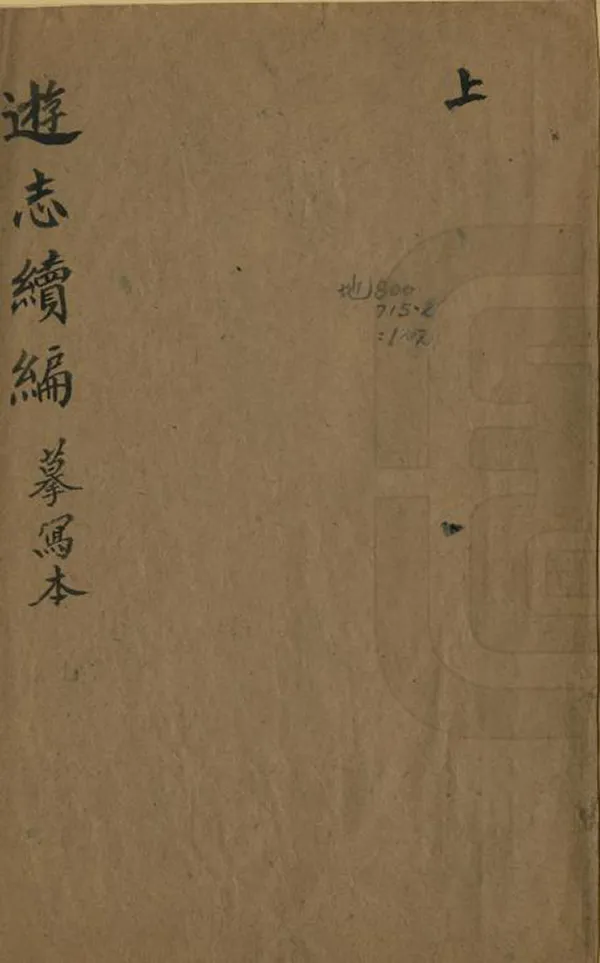 上
遊志續編
摹寫本
地800
715.2